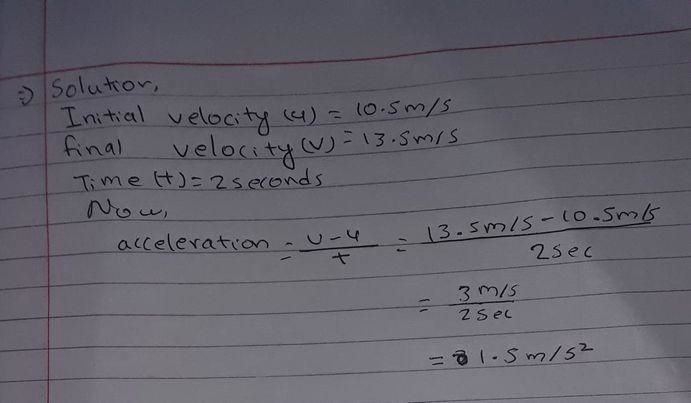 ⇒ Solution,
Initial velocity (u) = 10.5m/s
final velocity (v) = 13.5m/s
Time (t) = 2 seconds
Now,
acceleration = v-u/t = 13.5m/s - 10.5m/s/2sec
= 3 m/s/2 sec
= 1.5 m/s²